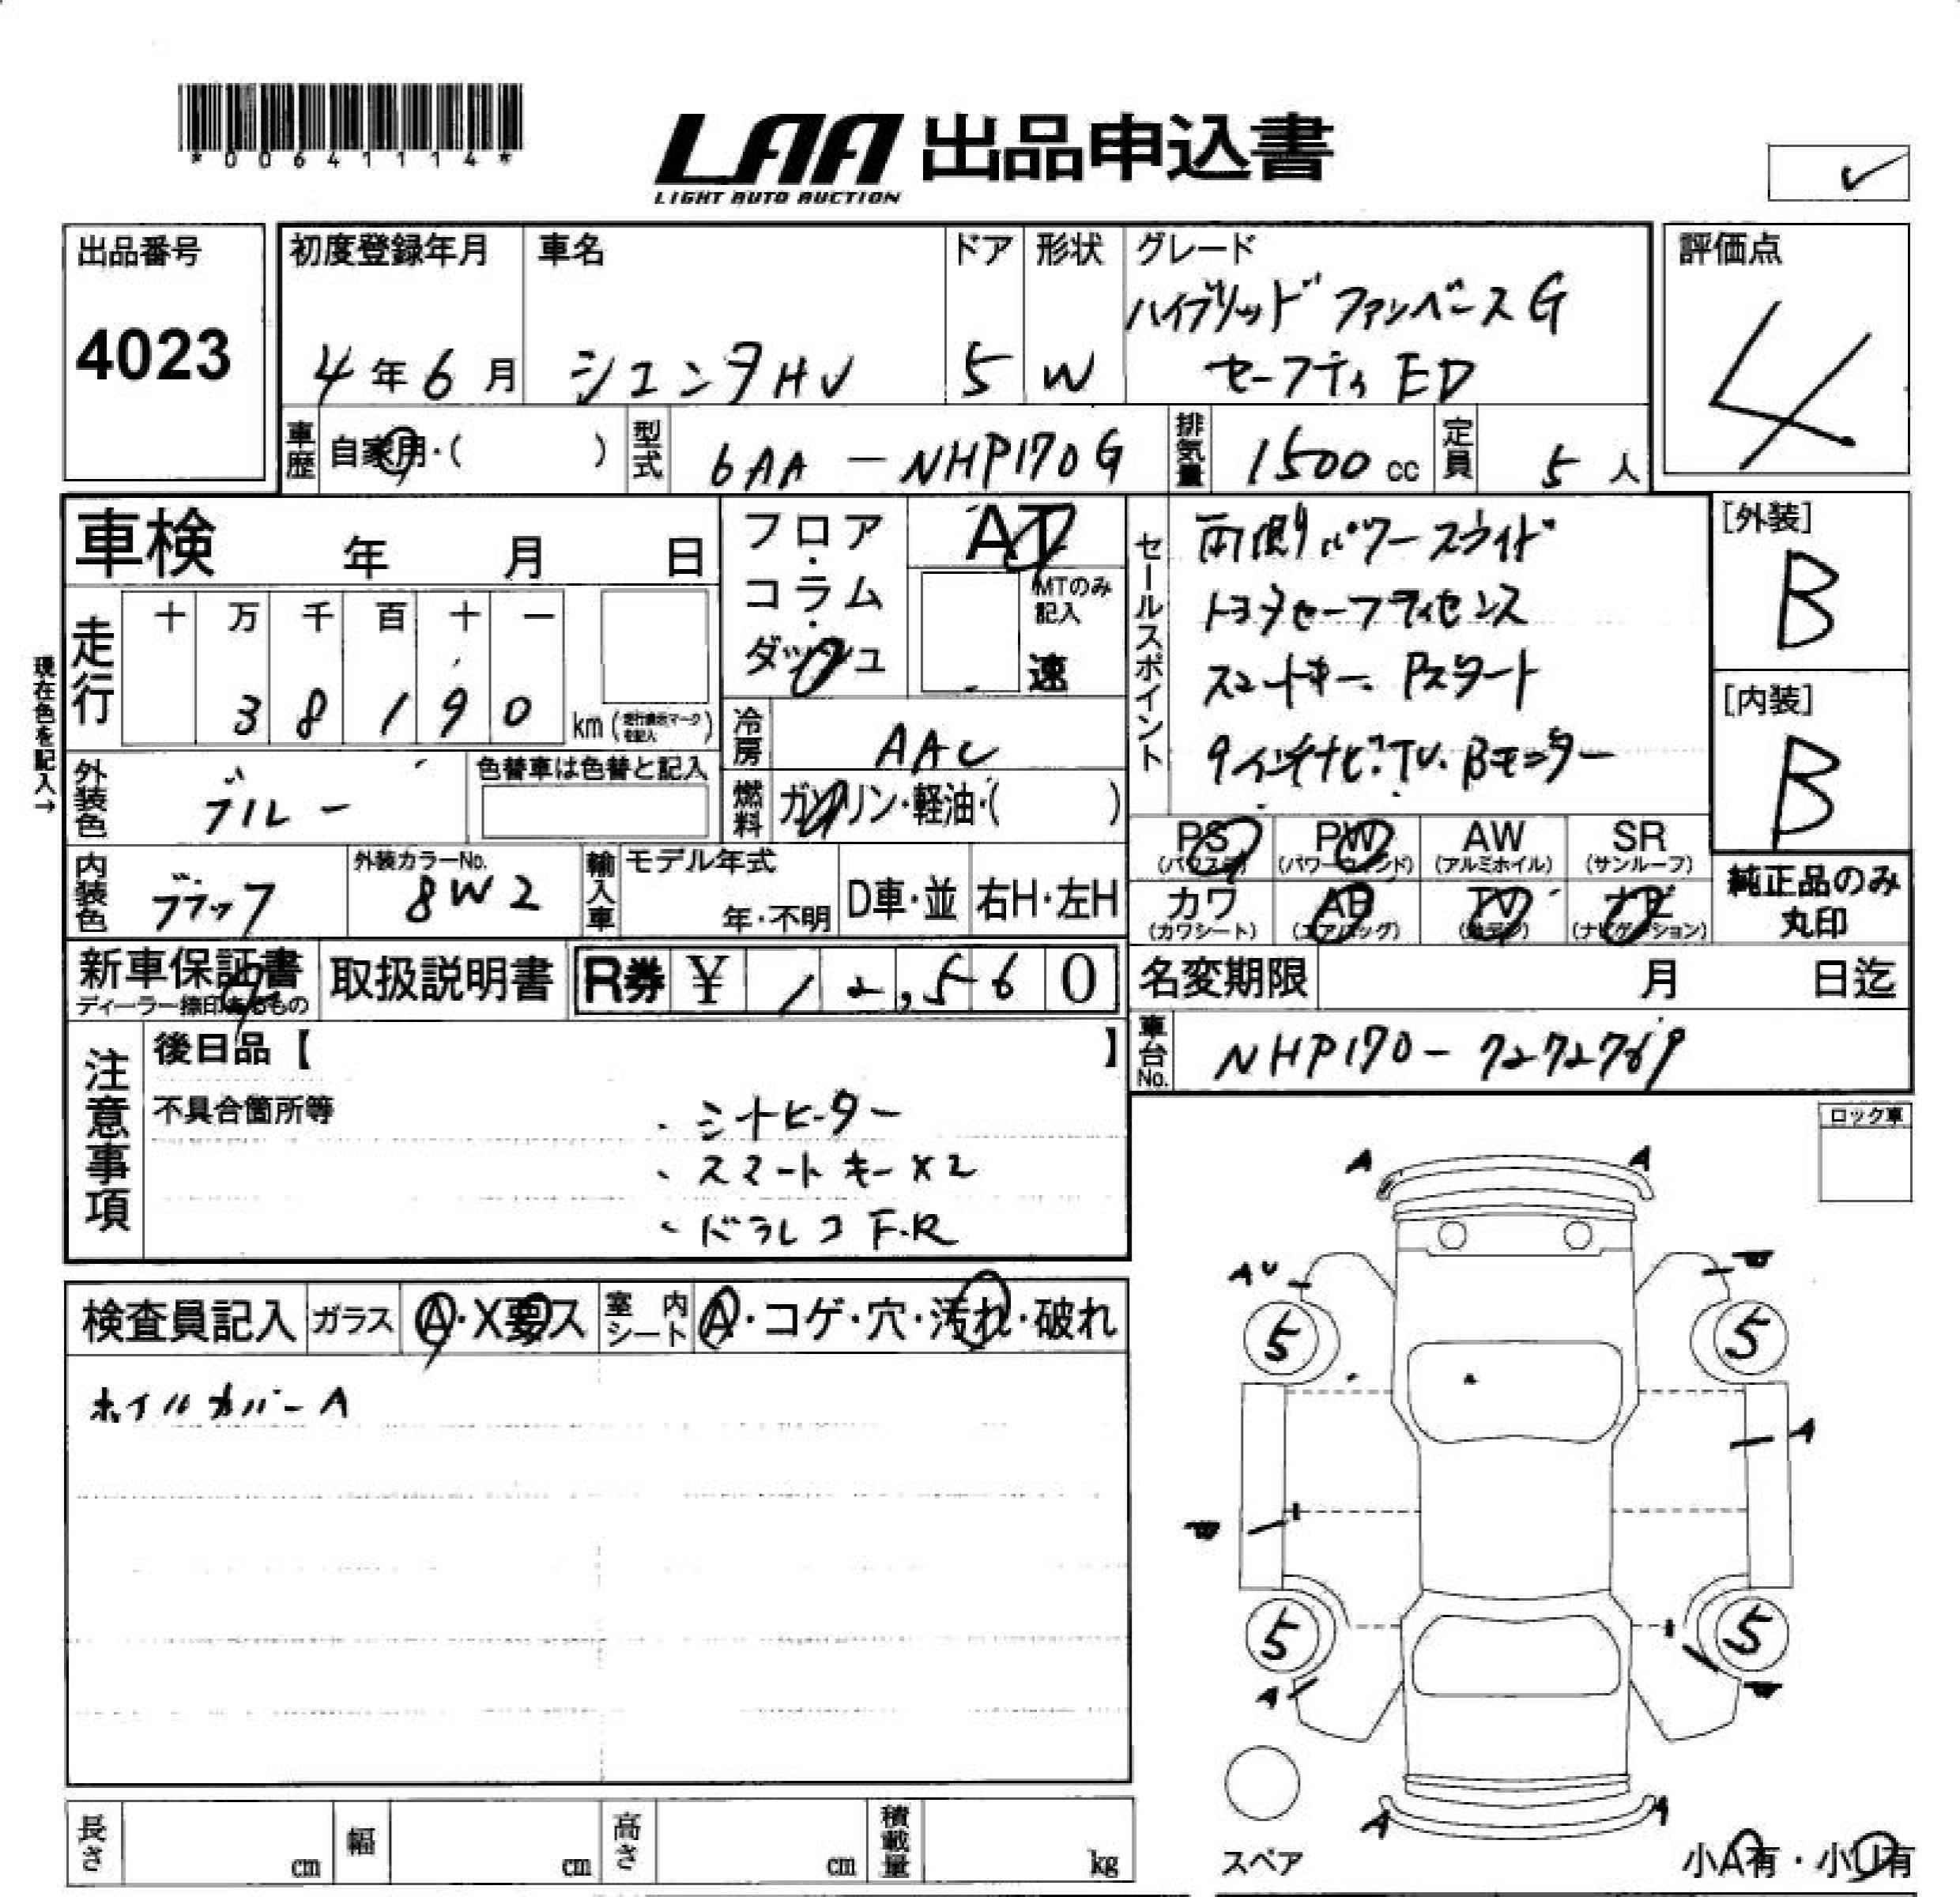 *00641114*
LAA 出品申込書
LIGHT AUTO AUCTION
出品番号
4023
初度登録年月
4年6月
車名
シエンタHV
ドア
5
形状
W
グレード
ハイブリッド ファンベースG
セーフティED
評価点
4
車歴
自家用・( )
型式
6AA-NHP170G
排気量
1500cc
定員
5人
車検 年 月 日
走行
十 万 千 百 十 一
3 8 1 9 0
km(走行表示マークを記入)
現在色を記入→
外装色
ブルー
色替車は色替と記入
内装色
ブラック
外装カラーNo.
8W2
輸入車
モデル年式
年・不明
D車・並
右H・左H
フロア・コラム・ダッシュ
AT
MTのみ記入
速
冷房
AAC
燃料
ガソリン・軽油・( )
セールスポイント
両側パワースライド
トヨタセーフティセンス
スマートキー、Pスタート
9インチナビ.TV.Bモニター
[外装]
B
[内装]
B
PS(パワステ) PW(パワーウィンド) AW(アルミホイル) SR(サンルーフ)
カワ(カワシート) AB(エアバッグ) TV(地デジ) ナビ(ナビゲーション)
純正品のみ丸印
新車保証書
ディーラー捺印あるもの
取扱説明書
R券 ¥12,560
名変期限 月 日迄
車台No.
NHP170-7272769
注意事項
後日品【 】
不具合箇所等
・シートヒーター
・スマートキー×2
・ドラレコ F.R
ロック車
検査員記入
ガラス
A・X要ス
室内シート
A・コゲ・穴・汚れ・破れ
ホイルカバーA
A A
AU
5 5
A
5 5
A
A A
スペア
小A有・小U有
長さ cm
幅 cm
高さ cm
積載量 kg